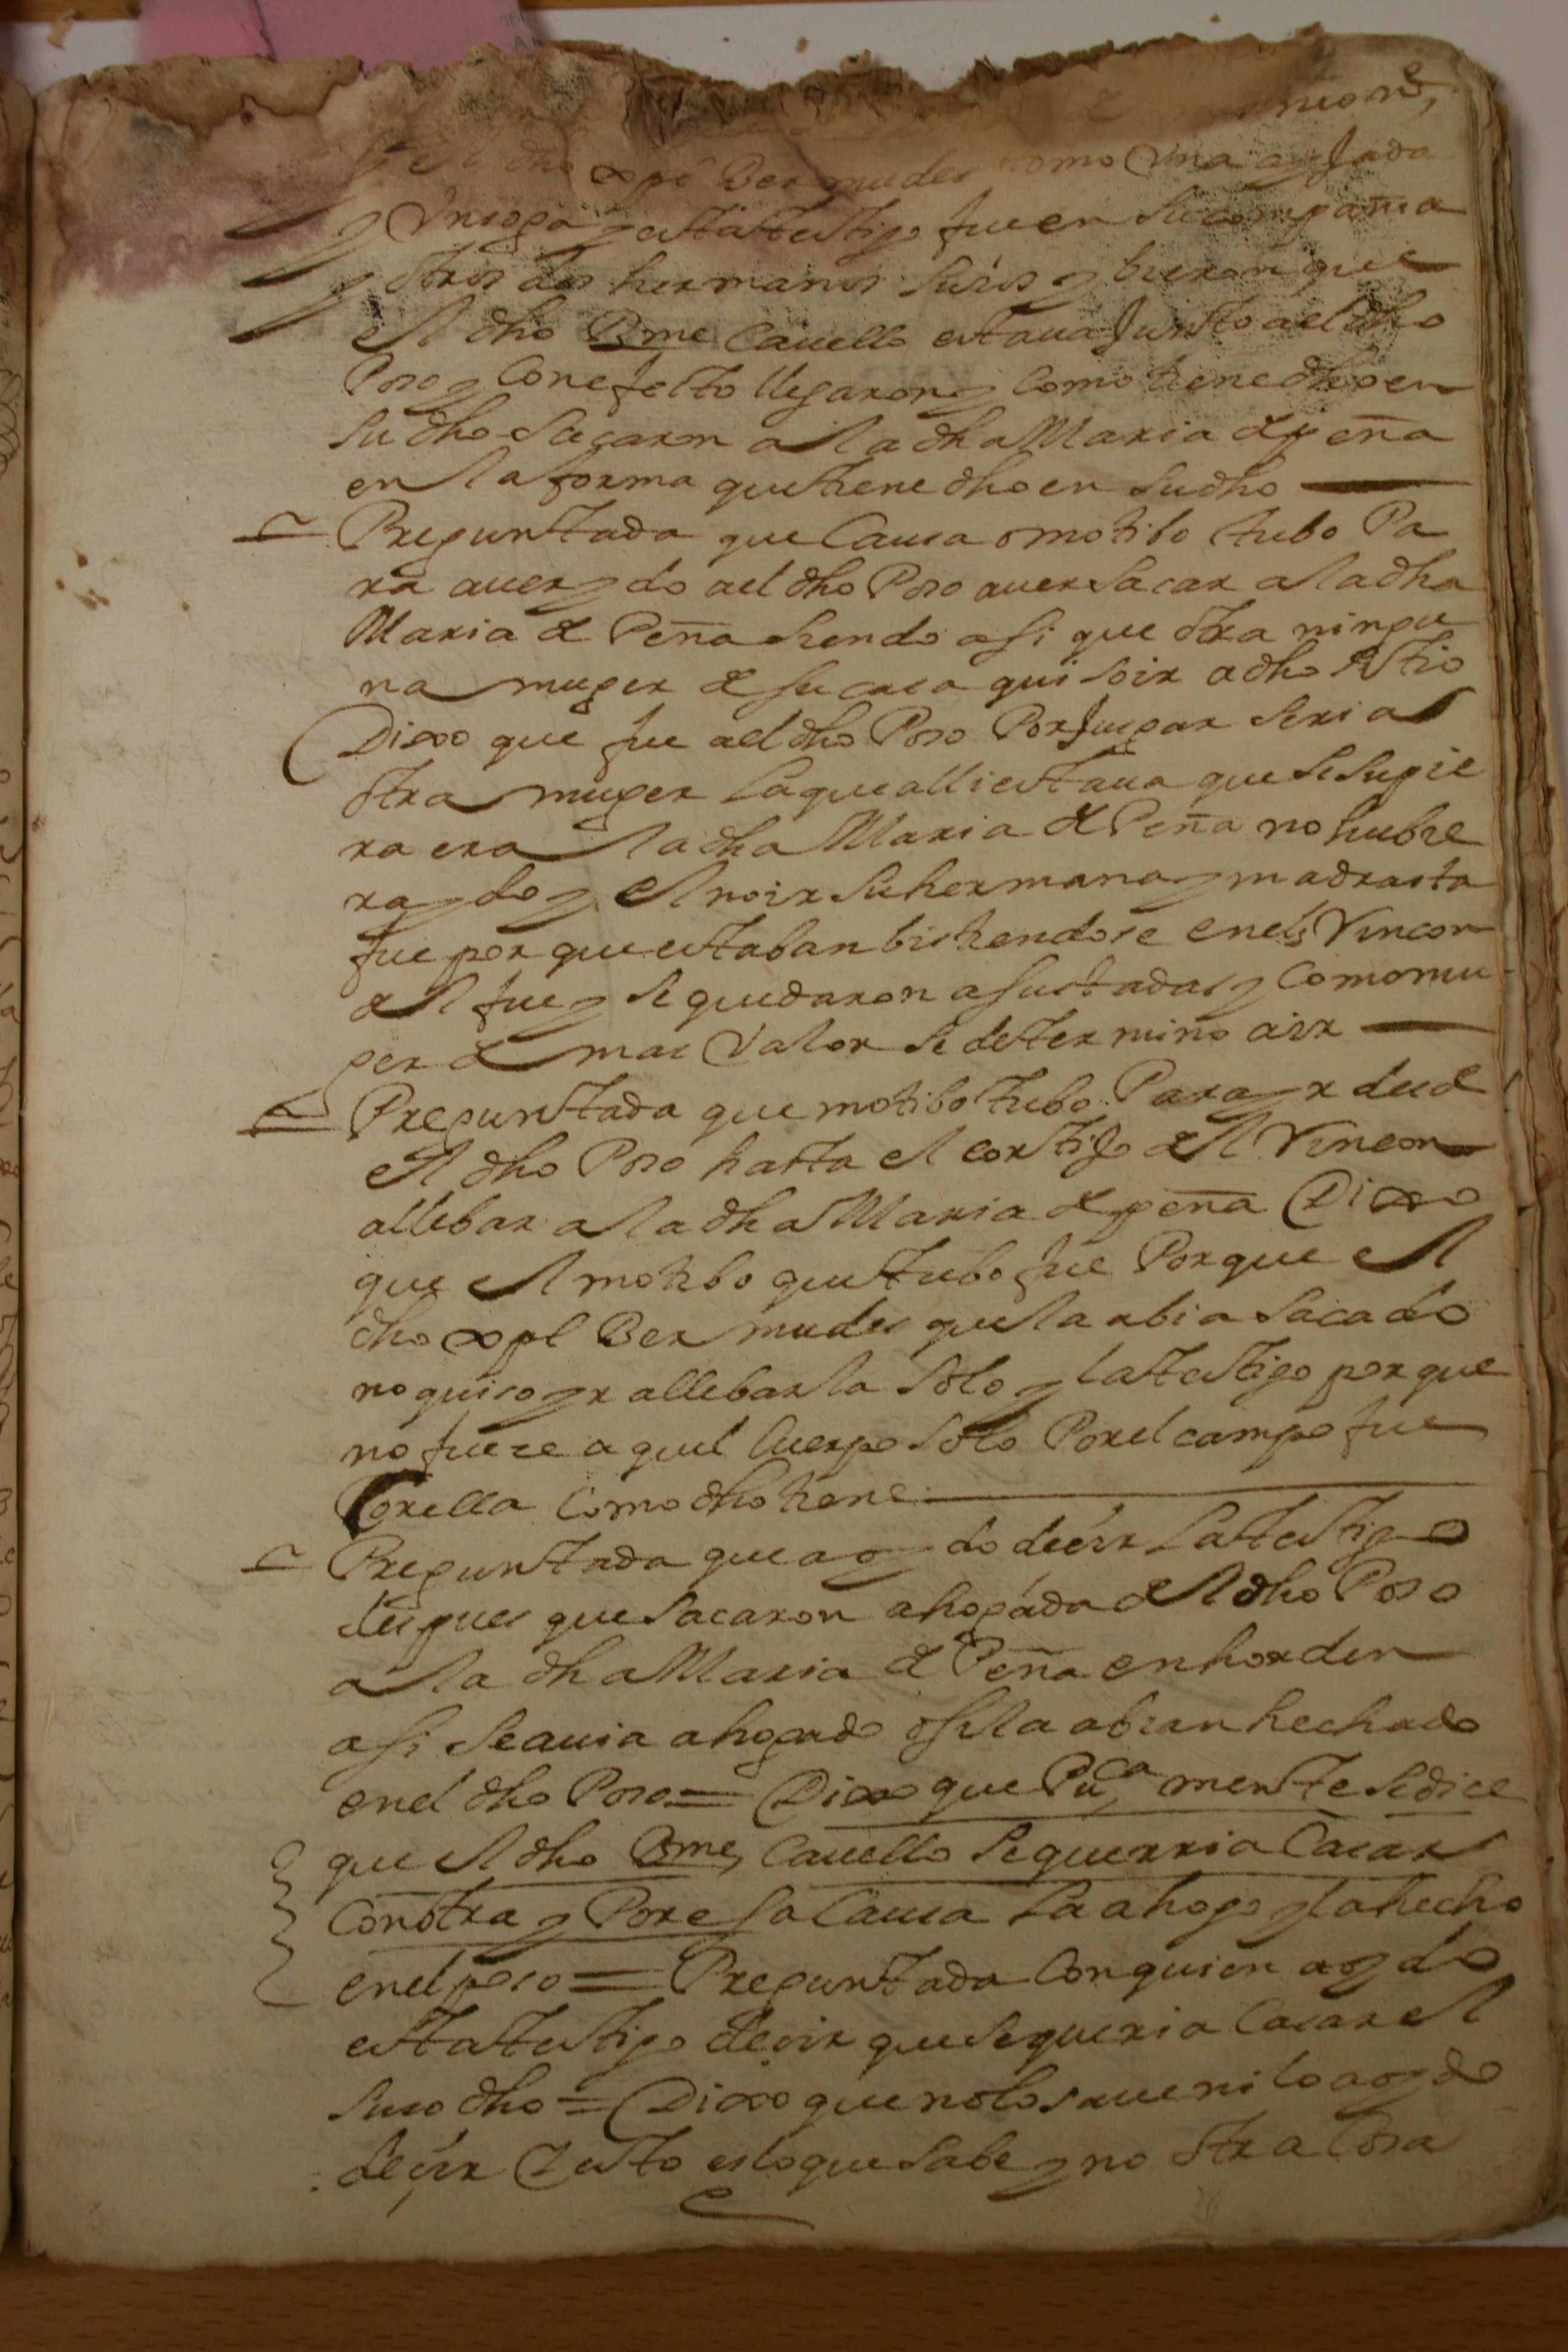 el dho xpl Bermudes como Una asada
y Un soga y esta testigo fue en su compañia
y otros dos hermanos suios y bieron que
el dho Bme Cauello estaua Junto ael dho
Poso y Con efecto llegaron y Como tiene dho en
su dho sacaron a la dha Maria de peña
en la forma que tiene dho en su dho
Preguntada que Causa o motibo tubo Pa
ra auer ydo ael dho Poso auer sacar a la dha
Maria de Peña siendo asi que otra ningu
na muger de su casa quiso ir a dho sitio
Dixo que fue ael dho Poso Por Jusgar seria
otra muger la que alli estaua que si supie
ra era la dha Maria de Peña no hubie
ra ydo y el no ir su hermana y madrasta
fue porque estaban bistiendose en el Rincon
del fue y se quedaron asustadas y Como mu
ger de mas Valor se determino a ir
Preguntada que motibo tubo Para yr desde
el dho Poso hasta el cortijo del Rincon
allebar a la dha Maria de peña Dixo
que el motibo que tubo fue Porque el
dho xpl Bermudes que la abia sacado
no quiso yr allebarla solo y la testigo porque
no fuese aquel Cuerpo solo Por el campo fue
Con ella Como dho tiene
Preguntada que a oydo desir la testigo
despues que sacaron ahogada del dho Poso
a la dha Maria de Peña en horden
a si se auia ahogado o si la abian hechado
en el dho Poso = Dixo que Puca mente se dice
que el dho Bme Cauello se querria Casar
Con otra y Por esa Causa la ahogo y la hecho
en el poso = Preguntada Con quien a oydo
esta testigo desir que se queria Casar el
suso dho = Dixo que no lo saue ni lo a oydo
desir Y esto es lo que sabe y no otra Cosa